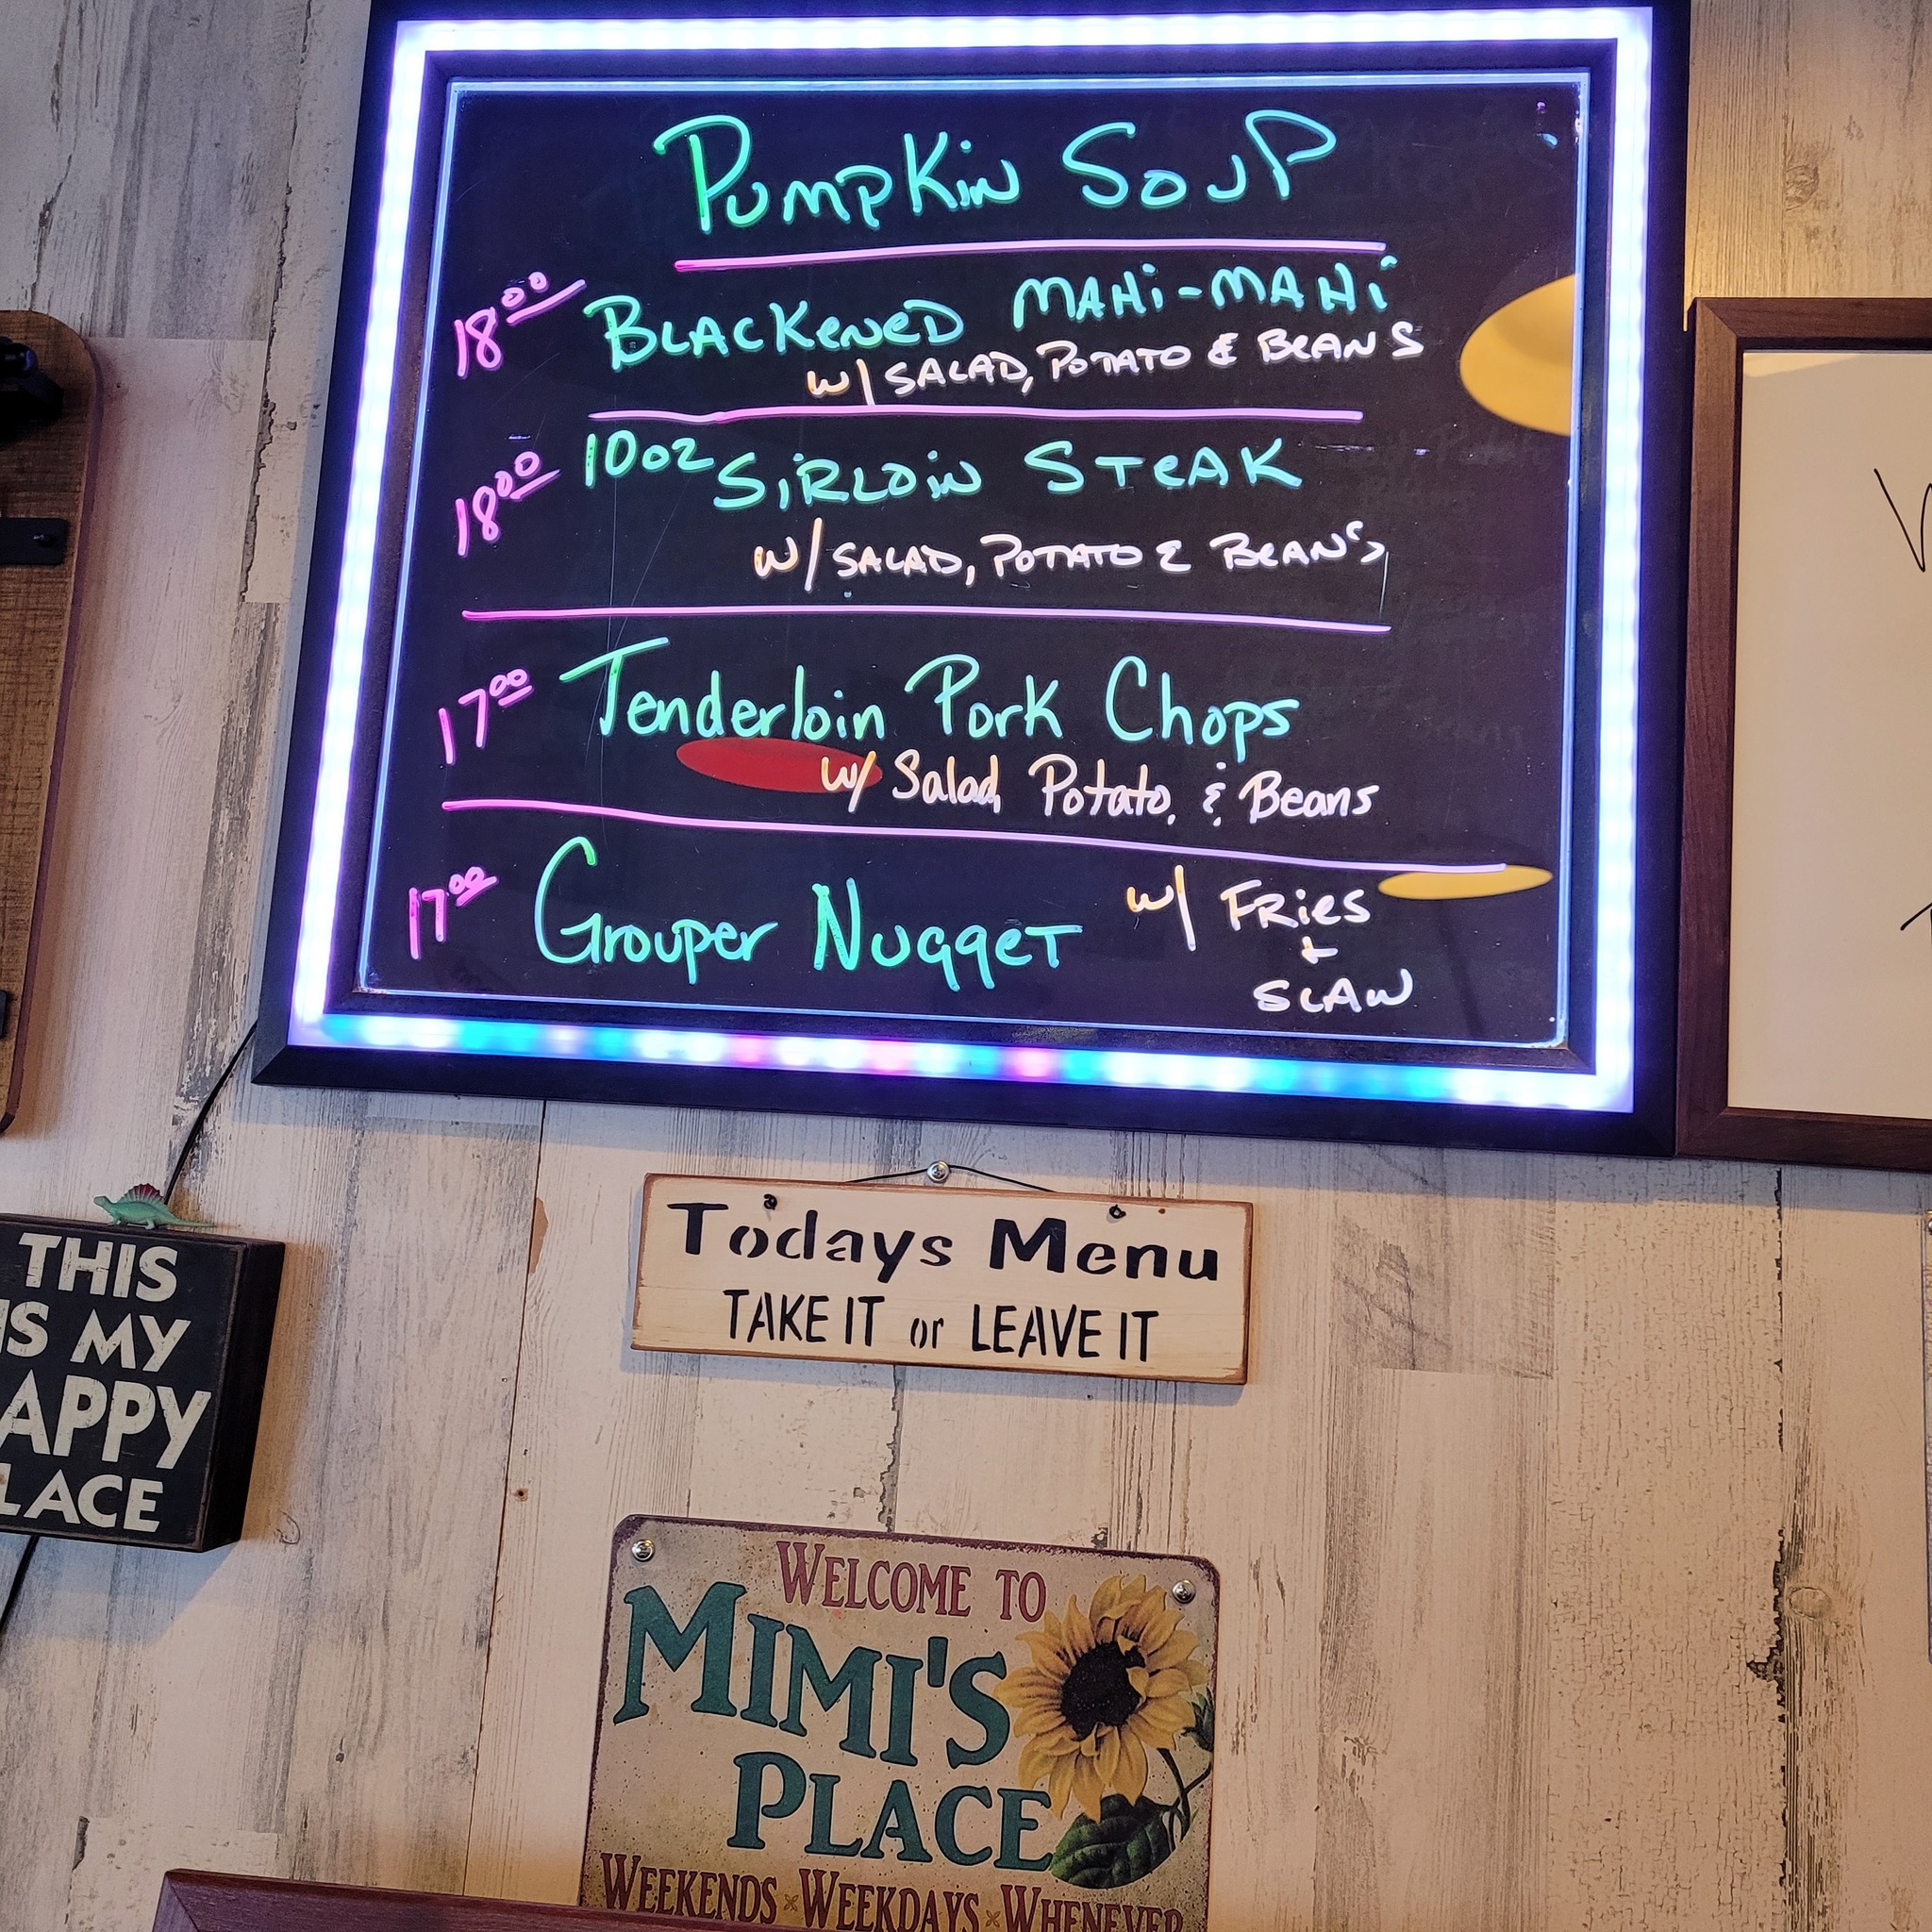 Pumpkin Soup
18.00 Blackened Mahi-Mahi
w/ Salad, Potato & Beans
18.00 10oz Sirloin Steak
w/ Salad, Potato & Bean's
17.00 Tenderloin Pork Chops
w/ Salad, Potato, & Beans
17.00 Grouper Nugget w/ Fries
+
Slaw
Todays Menu
TAKE IT or LEAVE IT
THIS
IS MY
APPY
LACE
WELCOME TO
MIMI'S
PLACE
WEEKENDS × WEEKDAYS × WHENEVER